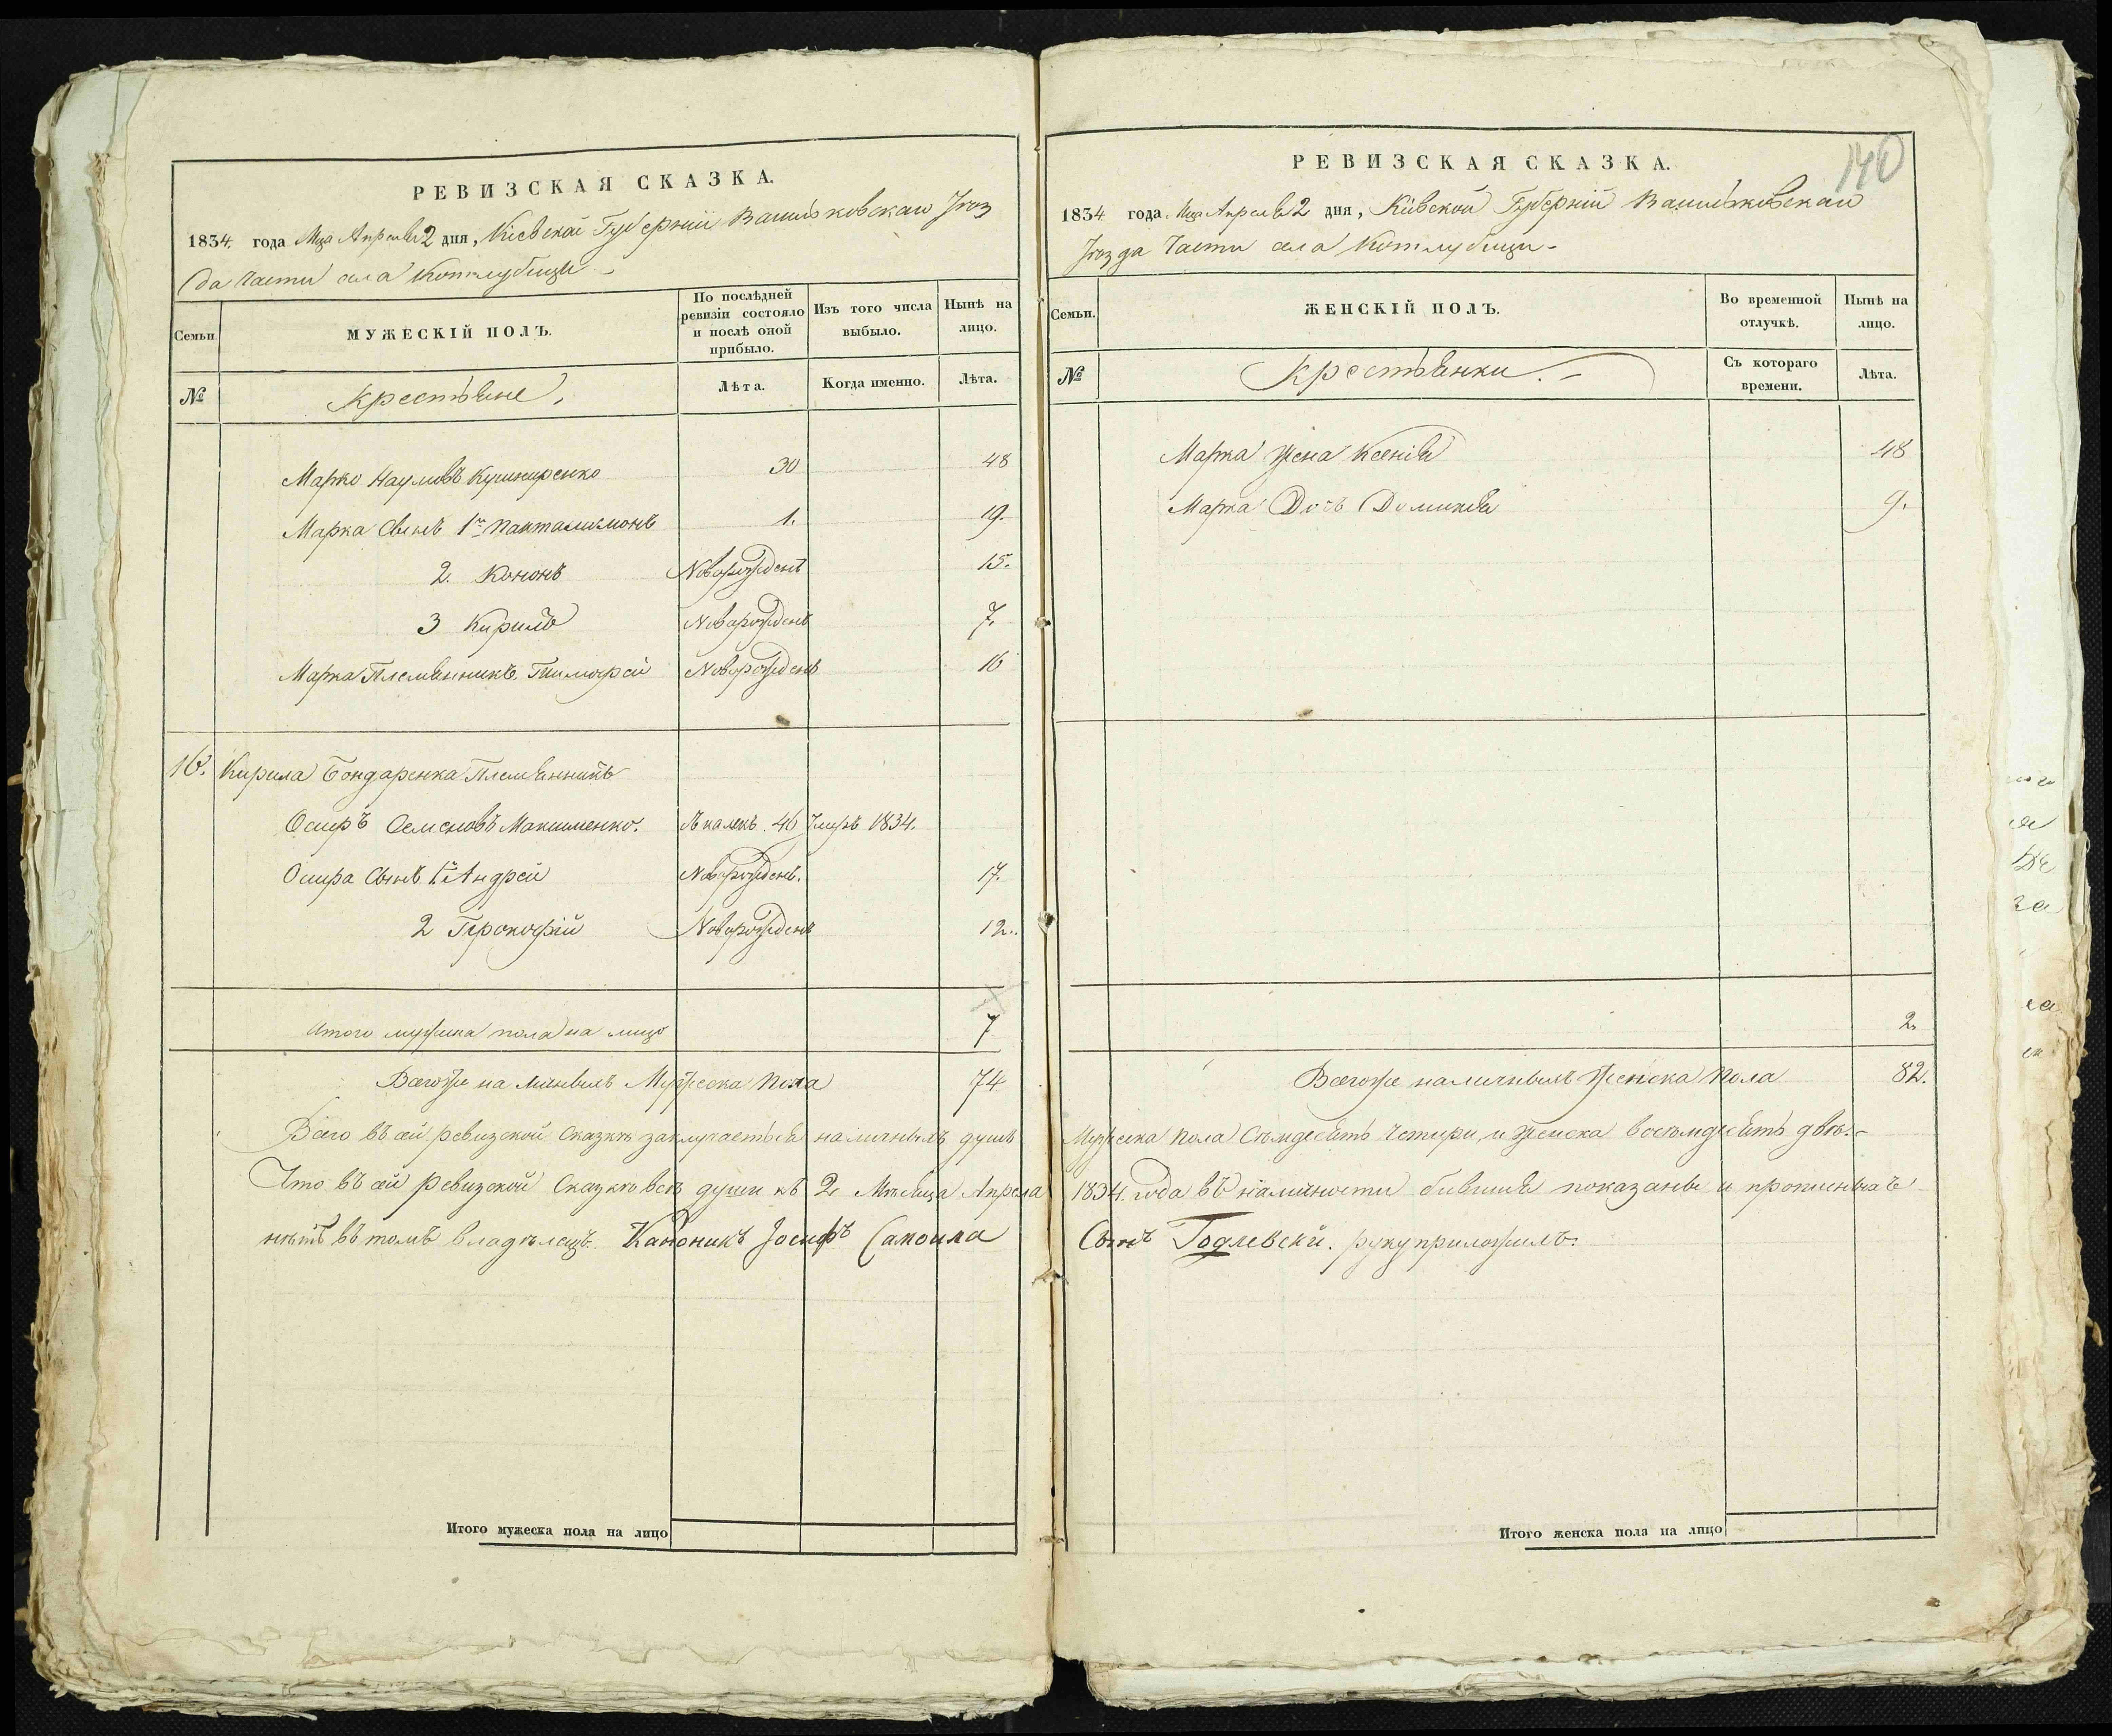 РЕВИЗСКАЯ СКАЗКА.
1834 года Мца Апреля 2 дня, Кіевской Губерніи Васильковскаго Уѣз
да Части села Котлубицы
Семьи.
МУЖЕСКІЙ ПОЛЪ.
По послѣдней ревизіи состояло и послѣ оной прибыло.
Изъ того числа выбыло.
Нынѣ на лицо.
№
Крестьяне,
Лѣта.
Когда именно.
Лѣта.
Марко Наумовъ Кушнеренко 30 48
Марка Сынъ 1й Пантелимонъ 1. 19.
2. Кононъ Новорожденъ 15.
3 Кирило Новорожденъ 7.
Марка Племянникъ Тимофей Новорожденъ 16
16. Кирила Бондаренка Племянникъ
Осипъ Семеновъ Максименко. 46 Умеръ 1834.
Осипа Сынъ 1й Андрей Новорожденъ. 17.
2 Прокофій Новорожденъ 12.
Итого мужеска пола на лицо 7
Всегоже на личныхъ Мужеска Пола 74
Всего въ сей ревизской Сказкѣ заключаеться наличныхъ душъ
Что въ сей ревизской Сказкѣ всѣ души къ 2 Мѣсяца Апреля
нѣтъ въ томъ владѣлецъ. Каноникъ Іосифъ Самоила
Итого мужеска пола на лицо
140
РЕВИЗСКАЯ СКАЗКА.
1834 года Мца Апреля 2 дня, Кіевской Губерніи Васильковскаго
Уѣзда Части села Котлубицы-
Семьи.
ЖЕНСКІЙ ПОЛЪ.
Во временной отлучкѣ.
Нынѣ на лицо.
№
Крестьянки.-
Съ котораго времени.
Лѣта.
Марка Жена Ксенія 48
Марка Дочь Домникія 9.
2.
Всегоже наличныхъ Женска Пола 82.
Мужеска Пола Сѣмдесять Четыри, и Женска восѣмдесять двѣ.-
1834. года въ наличности бившія показаны и прописныхъ
Сынъ Годлевскй. руку приложилъ.
Итого женска пола на лицо